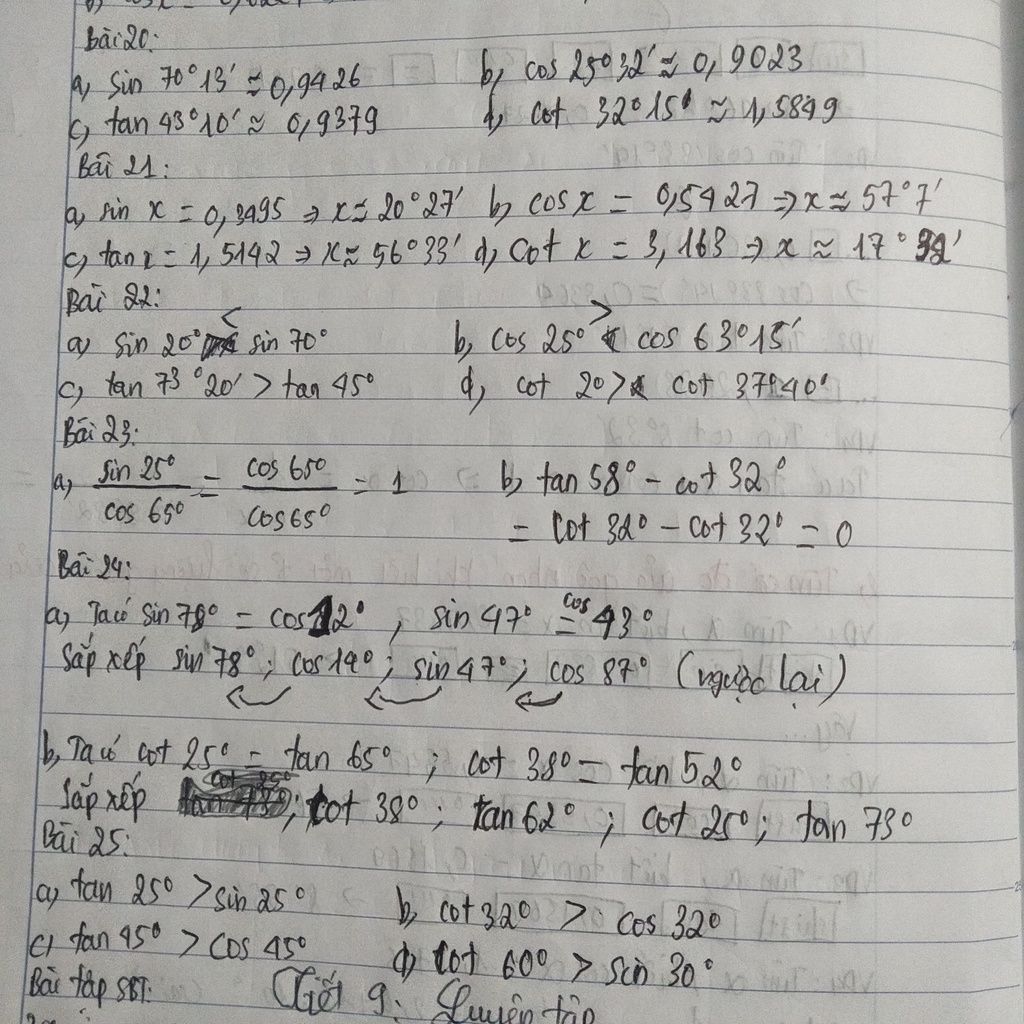 Bài 20:
a, sin 70°13' ≈ 0,9426 b, cos 25°32' ≈ 0,9023
c, tan 43°10' ≈ 0,9379 d, cot 32°15' ≈ 1,5849
Bài 21:
a, sin x = 0,3495 ⇒ x ≈ 20°27' b, cos x = 0,5427 ⇒ x ≈ 57°7'
c, tan x = 1,5142 ⇒ x ≈ 56°33' d, cot x = 3,163 ⇒ x ≈ 17°32'
Bài 22:
a, sin 20° < sin 70° b, cos 25° > cos 63°15'
c, tan 73°20' > tan 45° d, cot 2° > cot 37°40'
Bài 23:
a, sin 25° / cos 65° = cos 65° / cos 65° = 1 b, tan 58° - cot 32°
= cot 32° - cot 32° = 0
Bài 24:
a, Ta có sin 78° = cos 12° , sin 47° = cos 43°
Sắp xếp sin 78° ; cos 14° ; sin 47° ; cos 87° (ngược lại)
b, Ta có cot 25° = tan 65° ; cot 38° = tan 52°
Sắp xếp cot 38° ; tan 62° ; cot 25° ; tan 73°
Bài 25:
a, tan 25° > sin 25° b, cot 32° > cos 32°
c, tan 45° > cos 45° d, cot 60° > sin 30°
Bài tập SBT: Tiết 9: Luyện tập